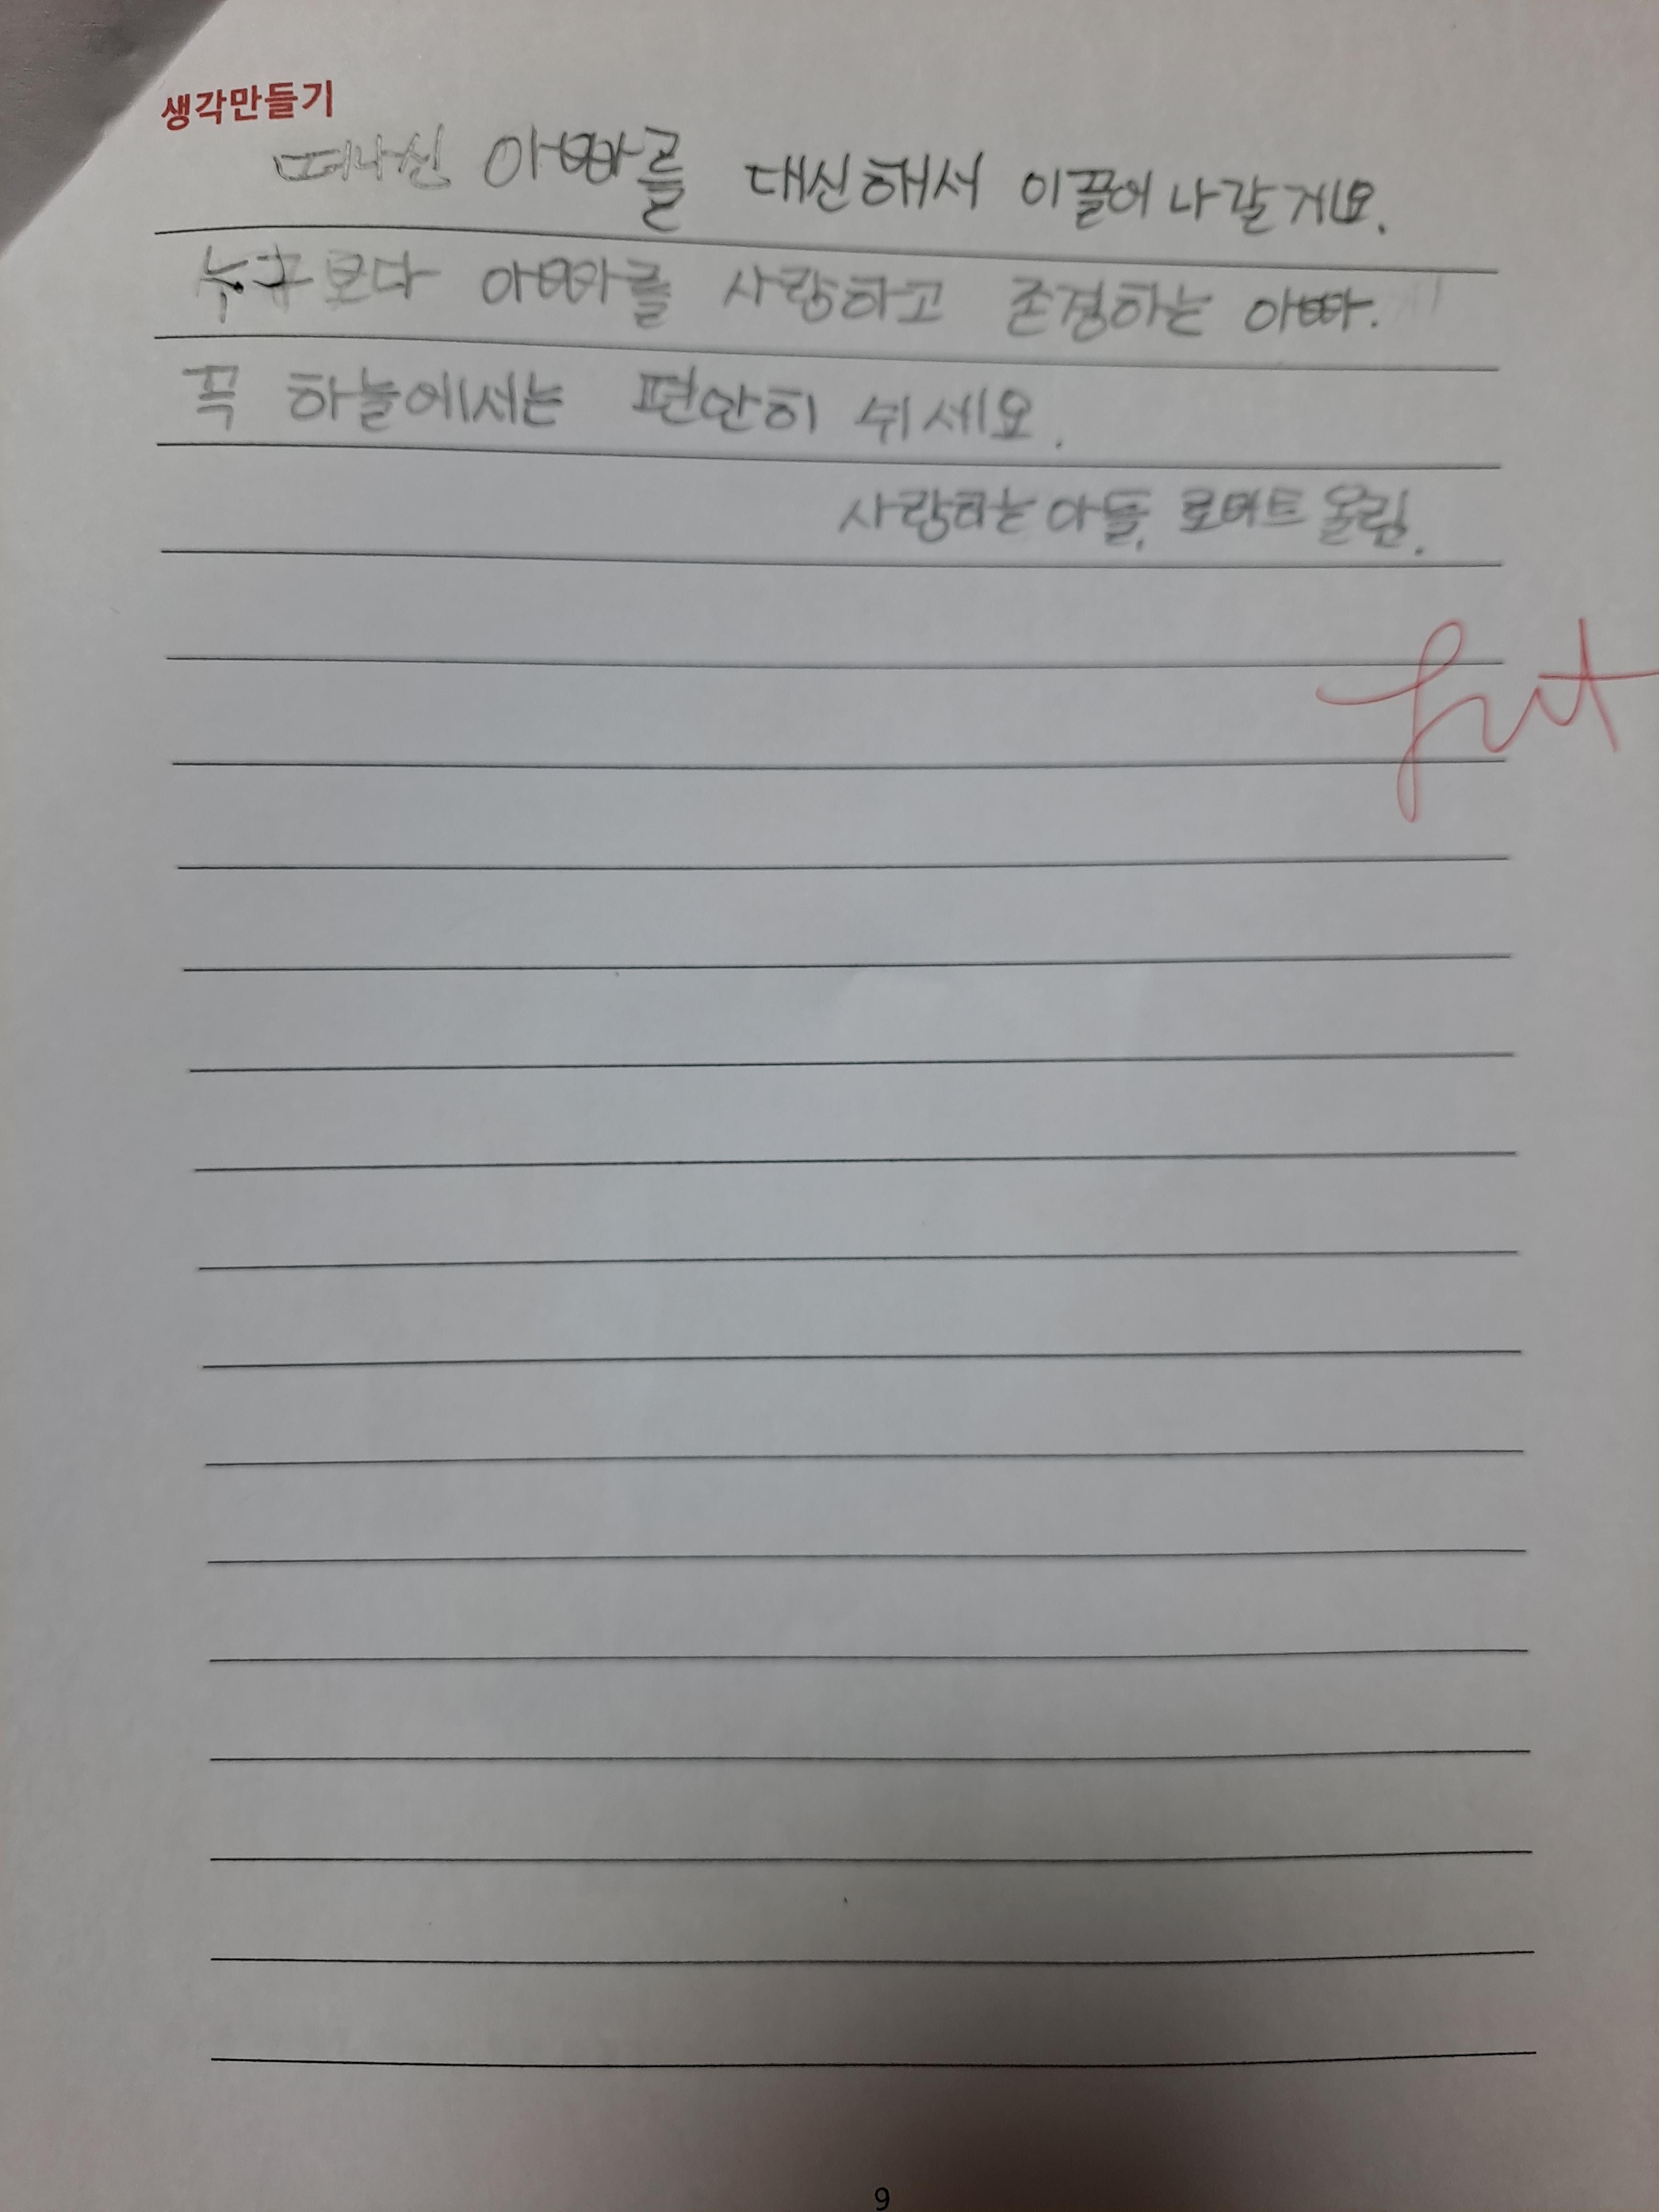 생각만들기
떠나신 아빠를 대신해서 이끌어 나갈게요.
누구보다 아빠를 사랑하고 존경하는 아빠.
꼭 하늘에서는 편안히 쉬세요.
사랑하는 아들, 로버트 올림.
9